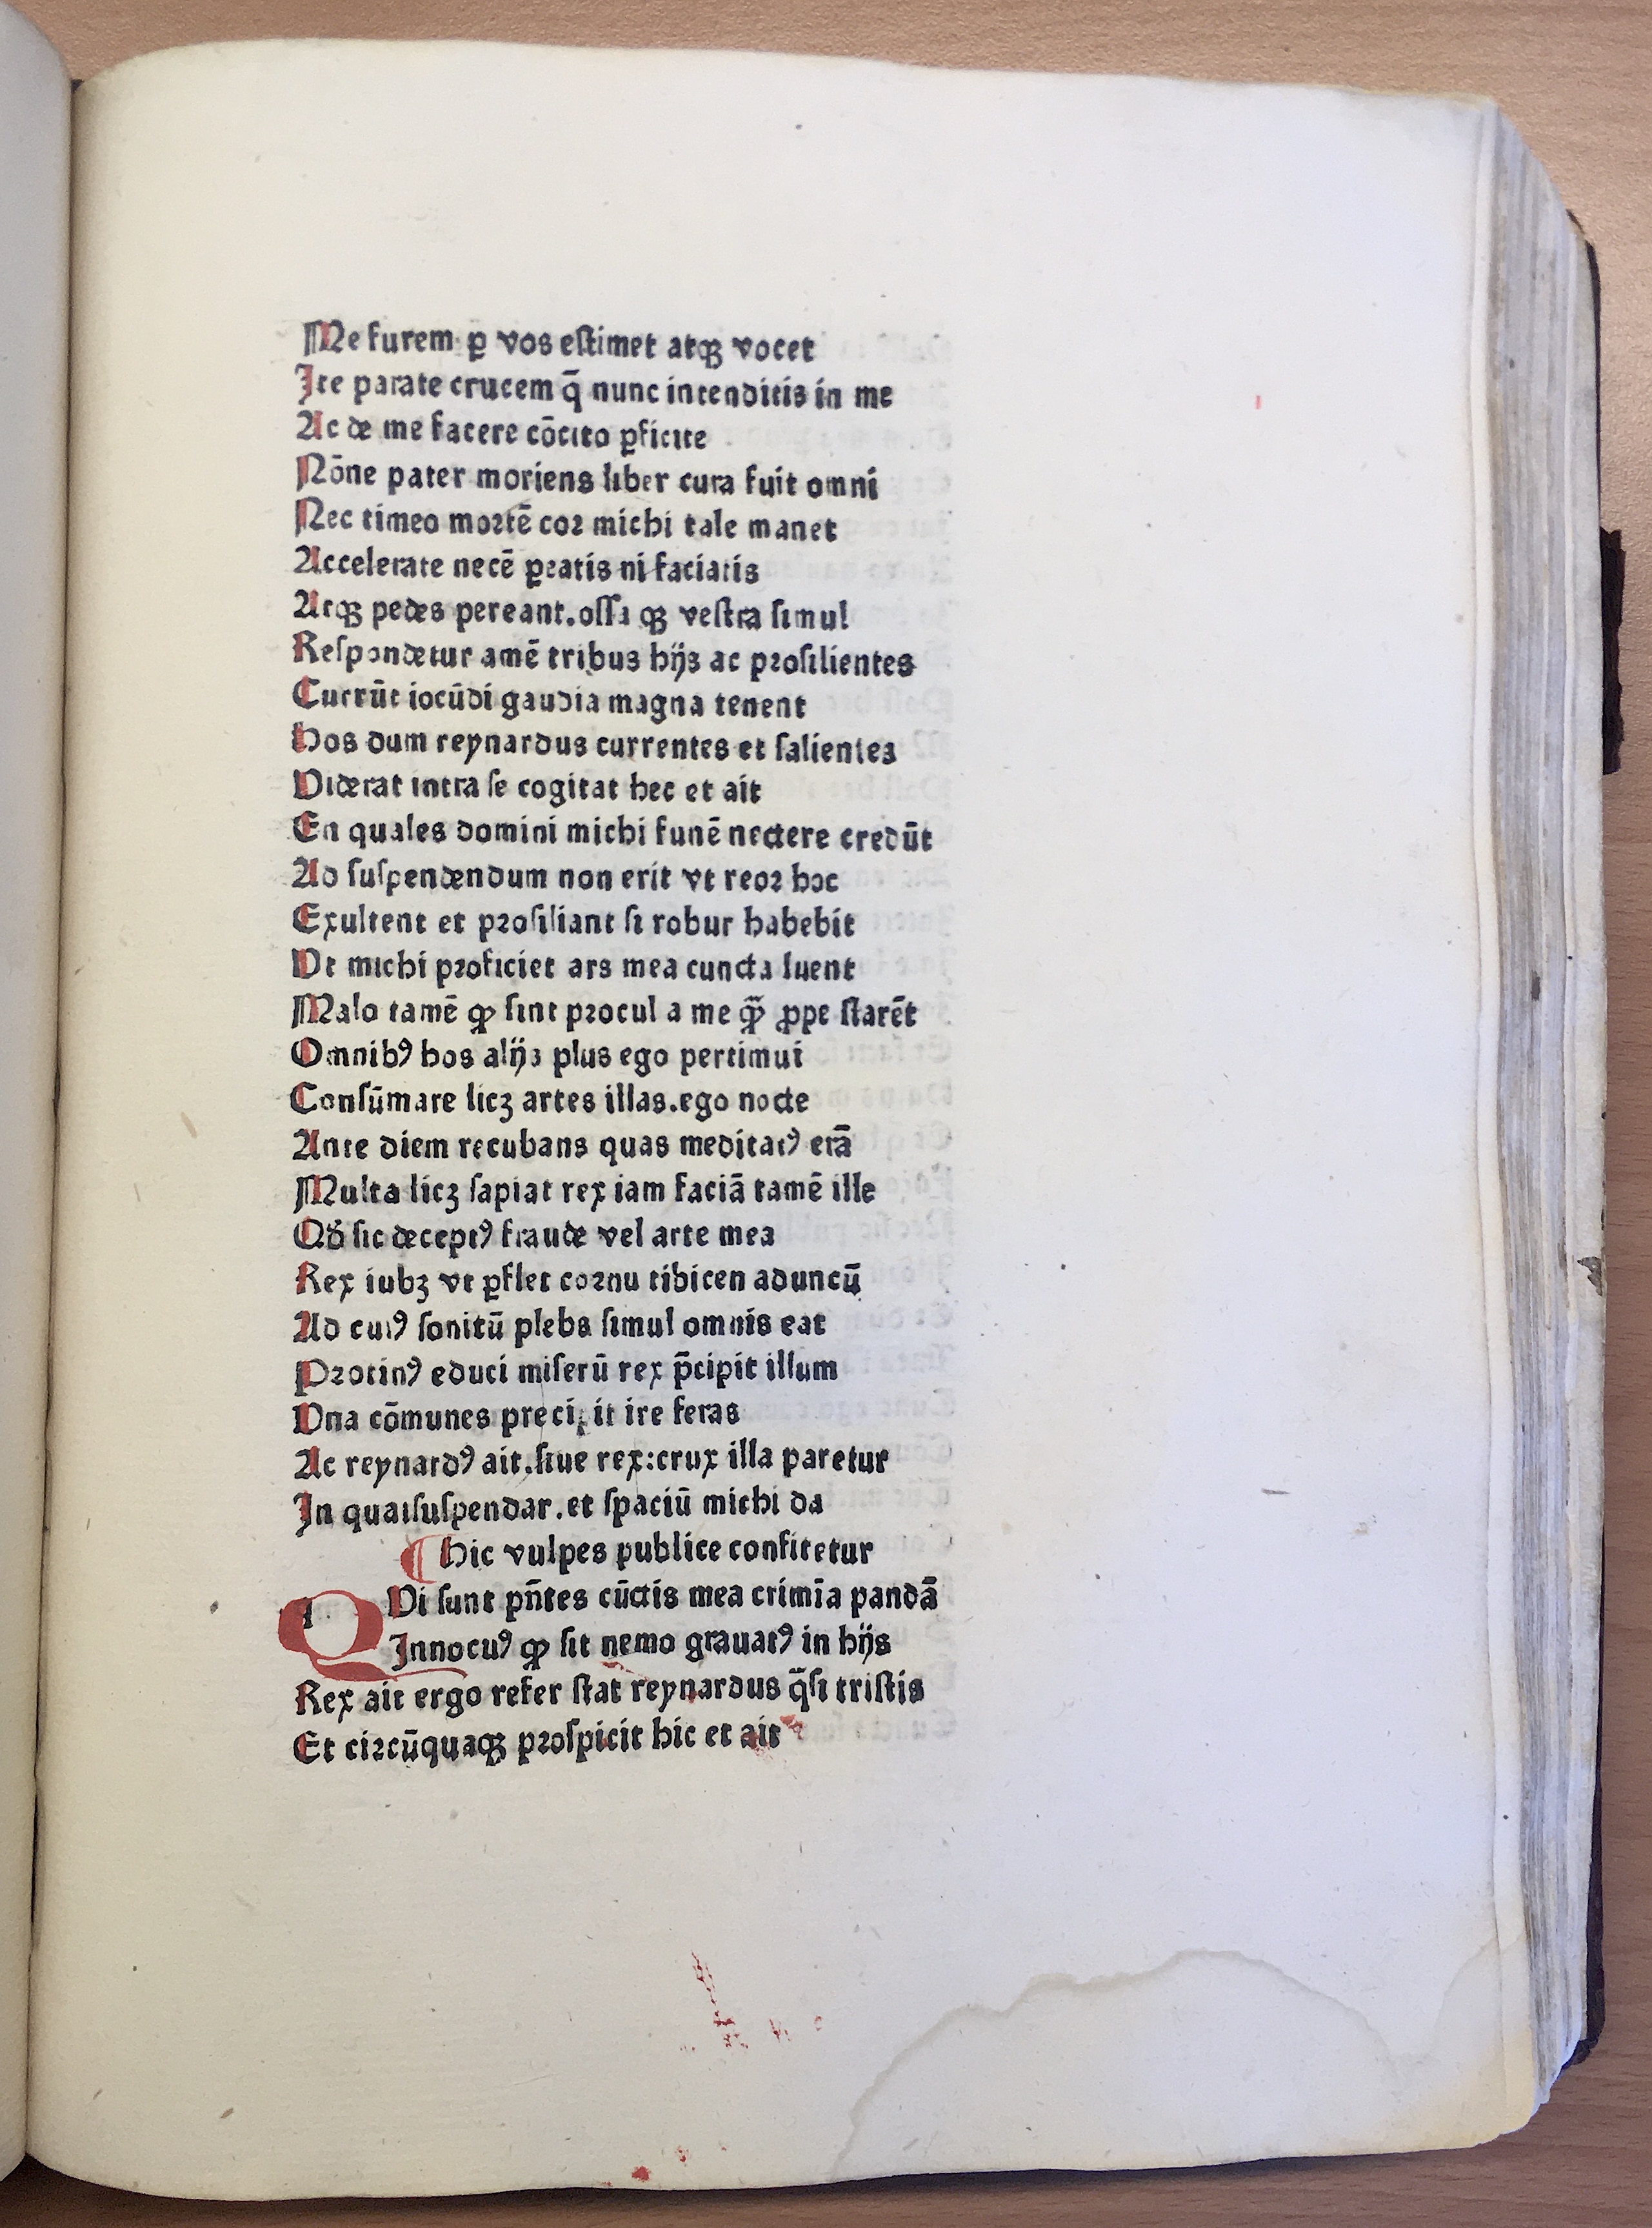 Me furem ꝑ vos eſtimet atqꝫ vocet
Ite parate crucem q̄ nunc intenditis in me
Ac de me facere cōcito ꝑficite
Nōne pater moriens liber cura fuit omni
Nec timeo moꝛtē coꝛ michi tale manet
Accelerate necē ꝑeatis ni faciatis
Atqꝫ pedes pereant.oſſa qꝫ veſtra ſimul
Reſpondetur amē tribus hijs ac pꝛoſilientes
Currūt iocūdi gaudia magna tenent
Hos dum reynardus currentes et ſalientes
Viderat intra ſe cogitat hec et ait
En quales domini michi funē nectere credūt
Ad ſuſpendendum non erit vt reoꝛ hoc
Exultent et pꝛoſiliant ſi robur habebit
Vt michi pꝛoficiet ars mea cuncta luent
Malo tamē ꝙ ſint pꝛocul a me ꝙ̄ ꝓpe ſtarēt
Omnibꝰ hos alijs plus ego pertimui
Conſūmare licꝫ artes illas.ego nocte
Ante diem recubans quas meditatꝰ erā
Multa licꝫ ſapiat rex iam faciā tamē ille
Qđ ſic deceptꝰ fraude vel arte mea
Rex iubꝫ vt ꝑflet coꝛnu tibicen aduncū
Ad cuiꝰ ſonitū plebs ſimul omnis eat
Pꝛotinꝰ educi miſerū rex p̄cipit illum
Vna cōmunes precipit ire feras
Ac reynardꝰ ait.ſiue rex:crux illa paretur
In qua ſuſpendar.et ſpaciū michi da
¶ Hic vulpes publice confitetur
QVi ſunt pn̄tes cūctis mea crimīa pandā
Innocuꝰ ꝙ ſit nemo grauatꝰ in hijs
Rex ait ergo refer ſtat reynardus q̄ſi triſtis
Et ciꝛcūquaqꝫ pꝛoſpicit hic et ait